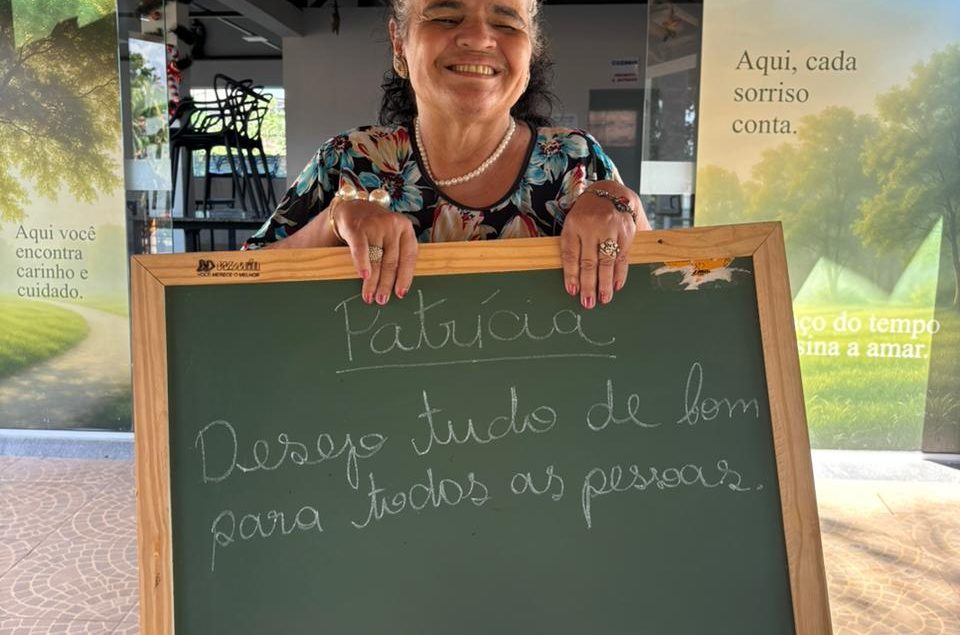 Aqui, cada
sorriso
conta.
Aqui você
encontra
carinho e
cuidado.
VOCÊ MERECE O MELHOR
Patrícia
Desejo tudo de bom
para todos as pessoas.
ço do tempo
sina a amar.
COZINHA